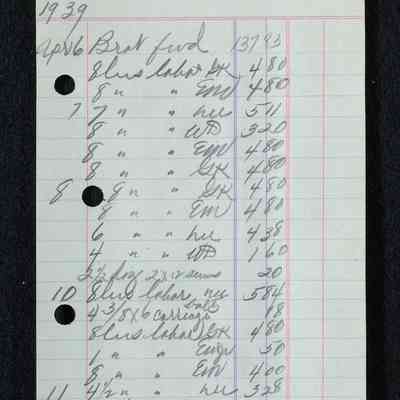 1939
Apr 6 Brot fwd 137 93
8 hrs labor GK 4 80
8 " " EM 4 80
7 7 " " hu 5 11
8 " " WD 3 20
8 " " EM 4 80
8 " " GK 4 80
8 8 " " GK 4 80
8 " " EM 4 80
6 " " hu 4 38
4 " " WD 1 60
2 1/2 doz 20
10 8 hrs labor hu 5 84
4 3/8 x 6 carriage bolts 18
8 hrs labor GK 4 80
1 " " 50
8 " " EM 4 00
11 4 1/2 " " hu 3 28